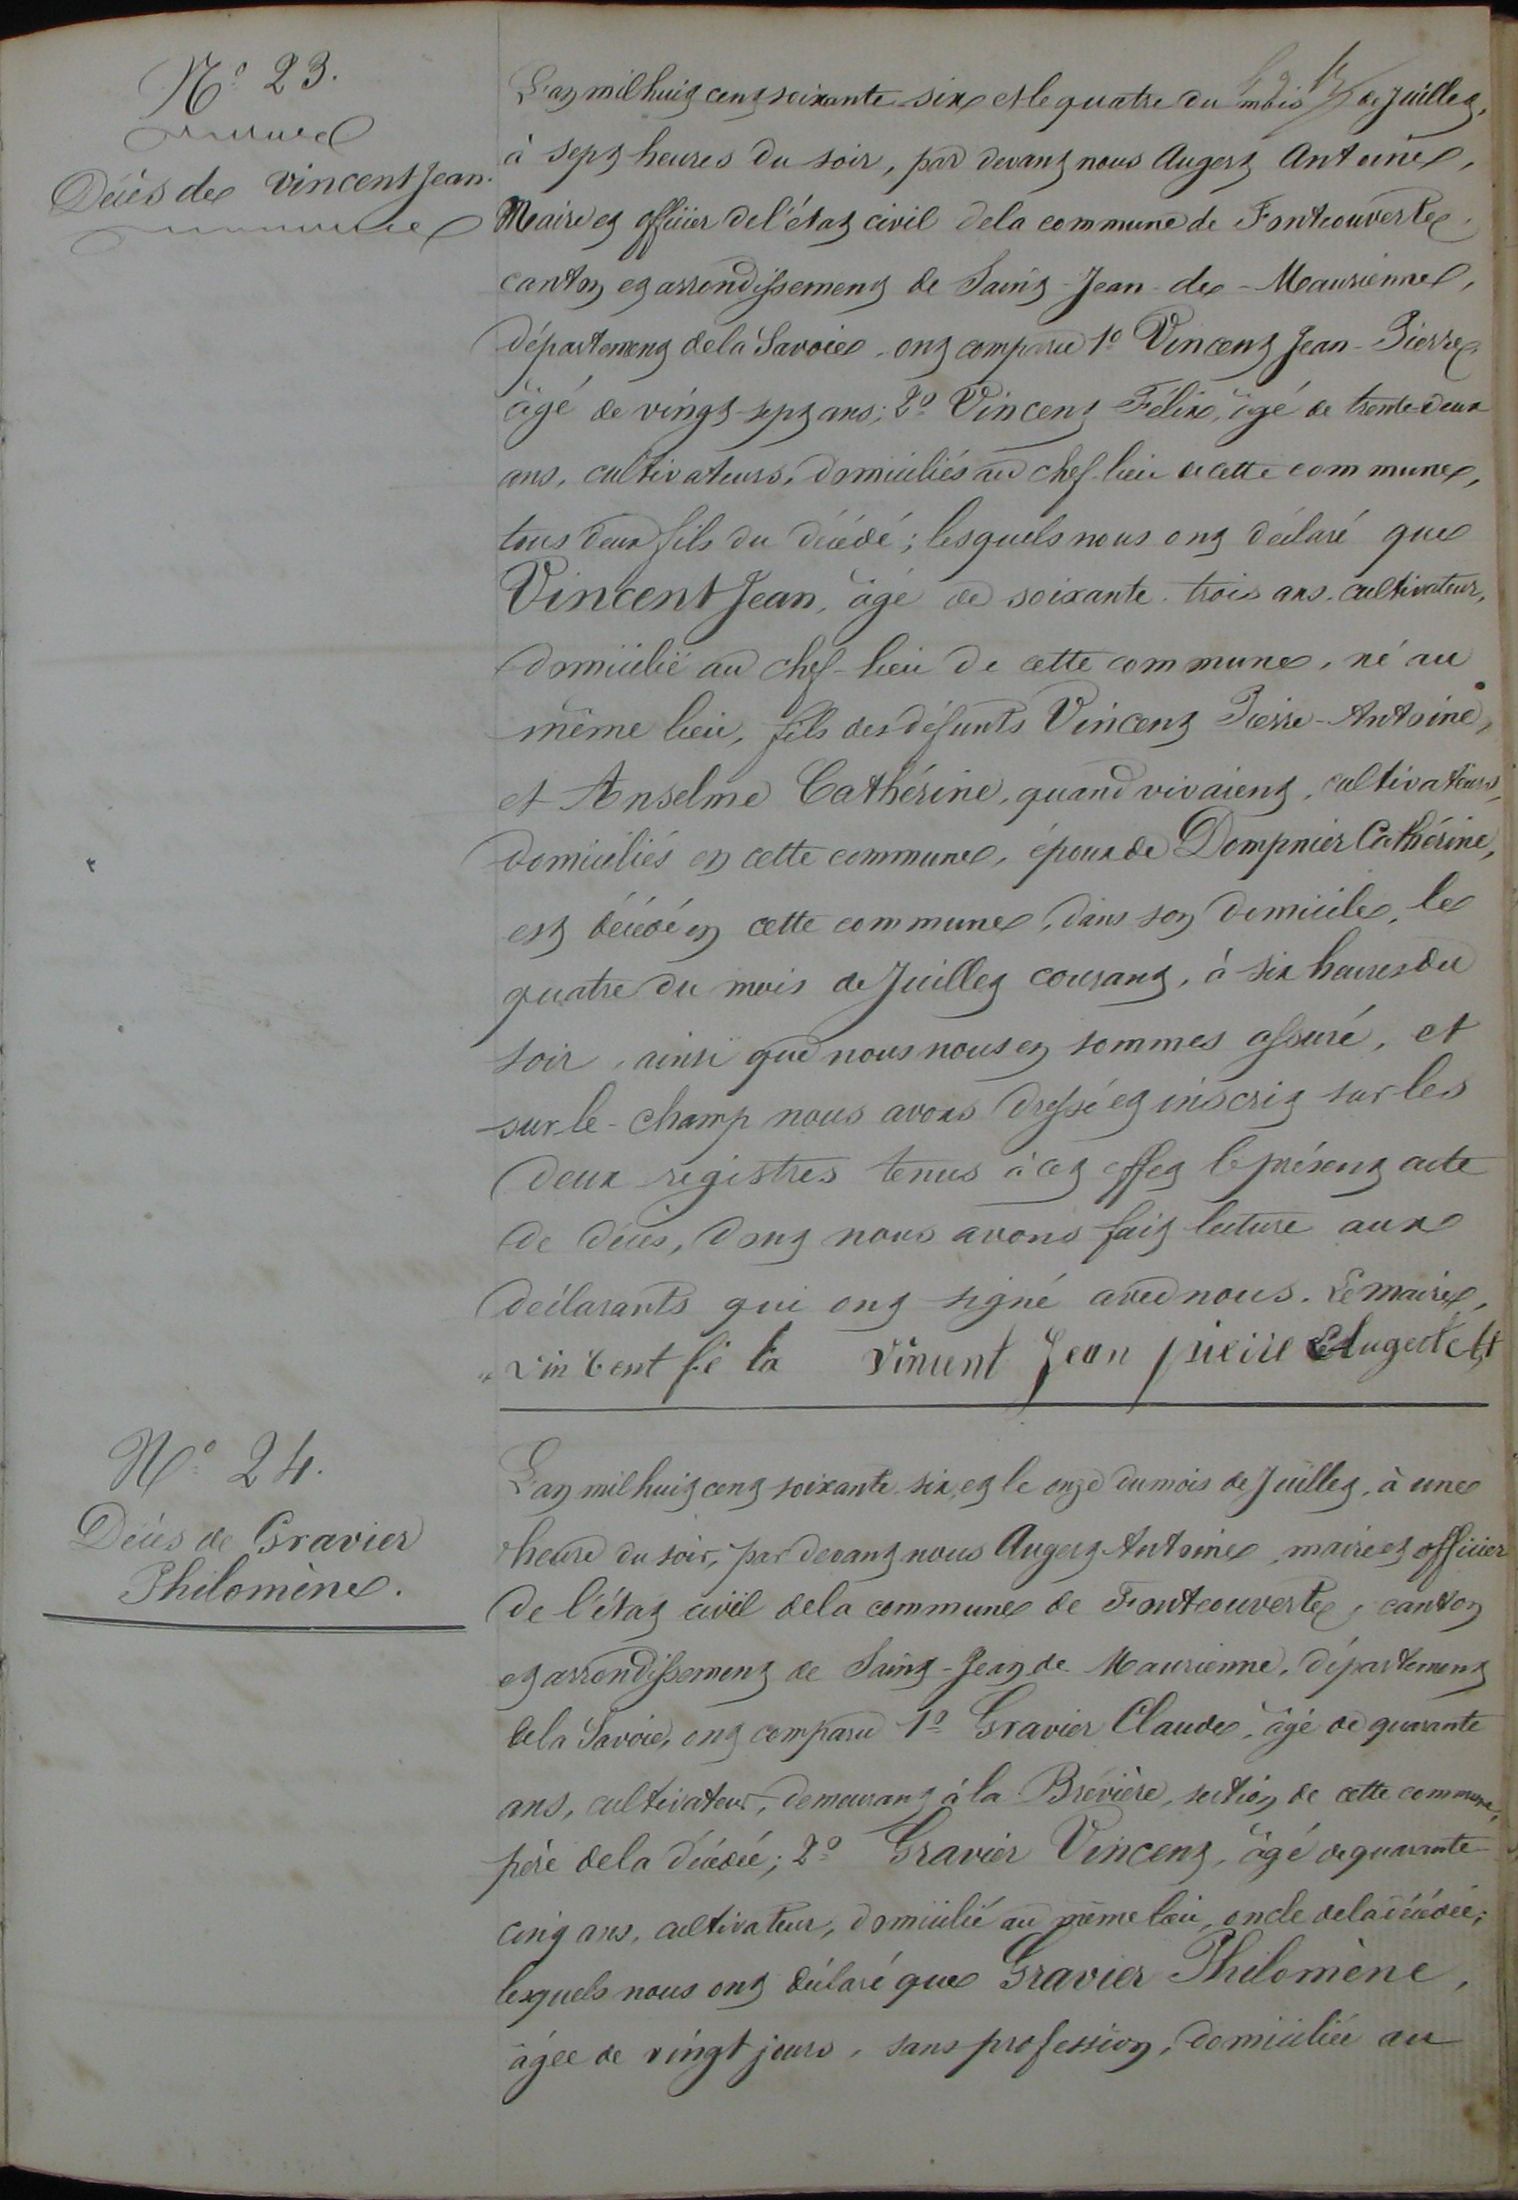 N.° 23.
Décès de Vincent Jean.
L'an mil huit cent soixante-six et le quatre du mois de Juillet,
à sept heures du soir, par devant nous Augert Antoine,
Maire et officier de l'état civil de la commune de Fontcouverte,
canton et arrondissement de Saint-Jean-de-Maurienne,
département de la Savoie, ont comparu 1° Vincent Jean-Pierre,
âgé de vingt-sept ans; 2° Vincent Félix, âgé de trente-deux
ans, cultivateurs, domiciliés au chef-lieu de cette commune,
tous deux fils du décédé; lesquels nous ont déclaré que
Vincent Jean, âgé de soixante-trois ans, cultivateur,
domicilié au chef-lieu de cette commune, né au
même lieu, fils des défunts Vincent Pierre-Antoine,
et Anselme Cathérine, quand vivaient, cultivateurs,
domiciliés en cette commune, époux de Dompnier Cathérine,
est décédé en cette commune, dans son domicile, le
quatre du mois de Juillet courant, à six heures du
soir, ainsi que nous nous en sommes assuré, et
sur-le-champ nous avons dressé et inscrit sur les
deux registres tenus à cet effet le présent acte
de décès, dont nous avons fait lecture aux
déclarants qui ont signé avec nous. Le maire,
Vincent fé lix Vincent Jean pierre Augert Ant
N.° 24.
Décès de Gravier
Philomène.
L'an mil huit cent soixante-six, et le onze du mois de Juillet, à une
heure du soir, par devant nous Augert Antoine, maire et officier
de l'état civil de la commune de Fontcouverte, canton
et arrondissement de Saint-Jean de Maurienne, département
de la Savoie, ont comparu 1° Gravier Claude, âgé de quarante
ans, cultivateur, demeurant à la Brévière, section de cette commune,
père de la décédée; 2° Gravier Vincent, âgé de quarante
cinq ans, cultivateur, domicilié au même lieu, oncle de la décédée;
lesquels nous ont déclaré que Gravier Philomène,
âgée de vingt jours, sans profession, domiciliée au